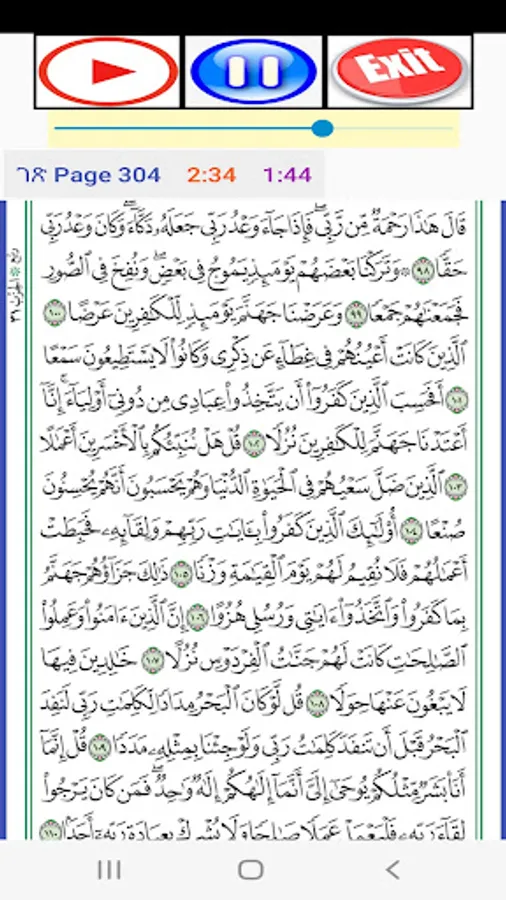 Exit
ገጽ Page 304 2:34 1:44
قَالَ هَٰذَا رَحْمَةٌ مِّن رَّبِّي ۖ فَإِذَا جَآءَ وَعْدُ رَبِّي جَعَلَهُۥ دَكَّآءَ ۖ وَكَانَ وَعْدُ رَبِّي
حَقًّا ٩٨ ۞ وَتَرَكْنَا بَعْضَهُمْ يَوْمَئِذٍ يَمُوجُ فِي بَعْضٍ ۖ وَنُفِخَ فِي ٱلصُّورِ
فَجَمَعْنَٰهُمْ جَمْعًا ٩٩ وَعَرَضْنَا جَهَنَّمَ يَوْمَئِذٍ لِّلْكَٰفِرِينَ عَرْضًا ١٠٠
ٱلَّذِينَ كَانَتْ أَعْيُنُهُمْ فِي غِطَآءٍ عَن ذِكْرِي وَكَانُوا۟ لَا يَسْتَطِيعُونَ سَمْعًا
١٠١ أَفَحَسِبَ ٱلَّذِينَ كَفَرُوٓا۟ أَن يَتَّخِذُوا۟ عِبَادِي مِن دُونِيٓ أَوْلِيَآءَ ۚ إِنَّآ
أَعْتَدْنَا جَهَنَّمَ لِلْكَٰفِرِينَ نُزُلًا ١٠٢ قُلْ هَلْ نُنَبِّئُكُم بِٱلْأَخْسَرِينَ أَعْمَٰلًا
١٠٣ ٱلَّذِينَ ضَلَّ سَعْيُهُمْ فِي ٱلْحَيَوٰةِ ٱلدُّنْيَا وَهُمْ يَحْسَبُونَ أَنَّهُمْ يُحْسِنُونَ
صُنْعًا ١٠٤ أُو۟لَٰٓئِكَ ٱلَّذِينَ كَفَرُوا۟ بِـَٔايَٰتِ رَبِّهِمْ وَلِقَآئِهِۦ فَحَبِطَتْ
أَعْمَٰلُهُمْ فَلَا نُقِيمُ لَهُمْ يَوْمَ ٱلْقِيَٰمَةِ وَزْنًا ١٠٥ ذَٰلِكَ جَزَآؤُهُمْ جَهَنَّمُ
بِمَا كَفَرُوا۟ وَٱتَّخَذُوٓا۟ ءَايَٰتِي وَرُسُلِي هُزُوًا ١٠٦ إِنَّ ٱلَّذِينَ ءَامَنُوا۟ وَعَمِلُوا۟
ٱلصَّٰلِحَٰتِ كَانَتْ لَهُمْ جَنَّٰتُ ٱلْفِرْدَوْسِ نُزُلًا ١٠٧ خَٰلِدِينَ فِيهَا
لَا يَبْغُونَ عَنْهَا حِوَلًا ١٠٨ قُل لَّوْ كَانَ ٱلْبَحْرُ مِدَادًا لِّكَلِمَٰتِ رَبِّي لَنَفِدَ
ٱلْبَحْرُ قَبْلَ أَن تَنفَدَ كَلِمَٰتُ رَبِّي وَلَوْ جِئْنَا بِمِثْلِهِۦ مَدَدًا ١٠٩ قُلْ إِنَّمَآ
أَنَا۠ بَشَرٌ مِّثْلُكُمْ يُوحَىٰٓ إِلَيَّ أَنَّمَآ إِلَٰهُكُمْ إِلَٰهٌ وَٰحِدٌ ۖ فَمَن كَانَ يَرْجُوا۟
لِقَآءَ رَبِّهِۦ فَلْيَعْمَلْ عَمَلًا صَٰلِحًا وَلَا يُشْرِكْ بِعِبَادَةِ رَبِّهِۦٓ أَحَدًۢا ١١٠
ربع الحزب ٣١